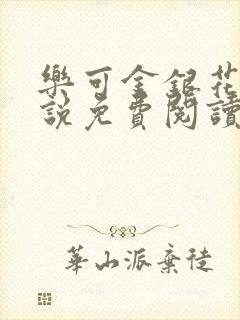 樂可金銀花
說免費閱讀
華山派棄徒